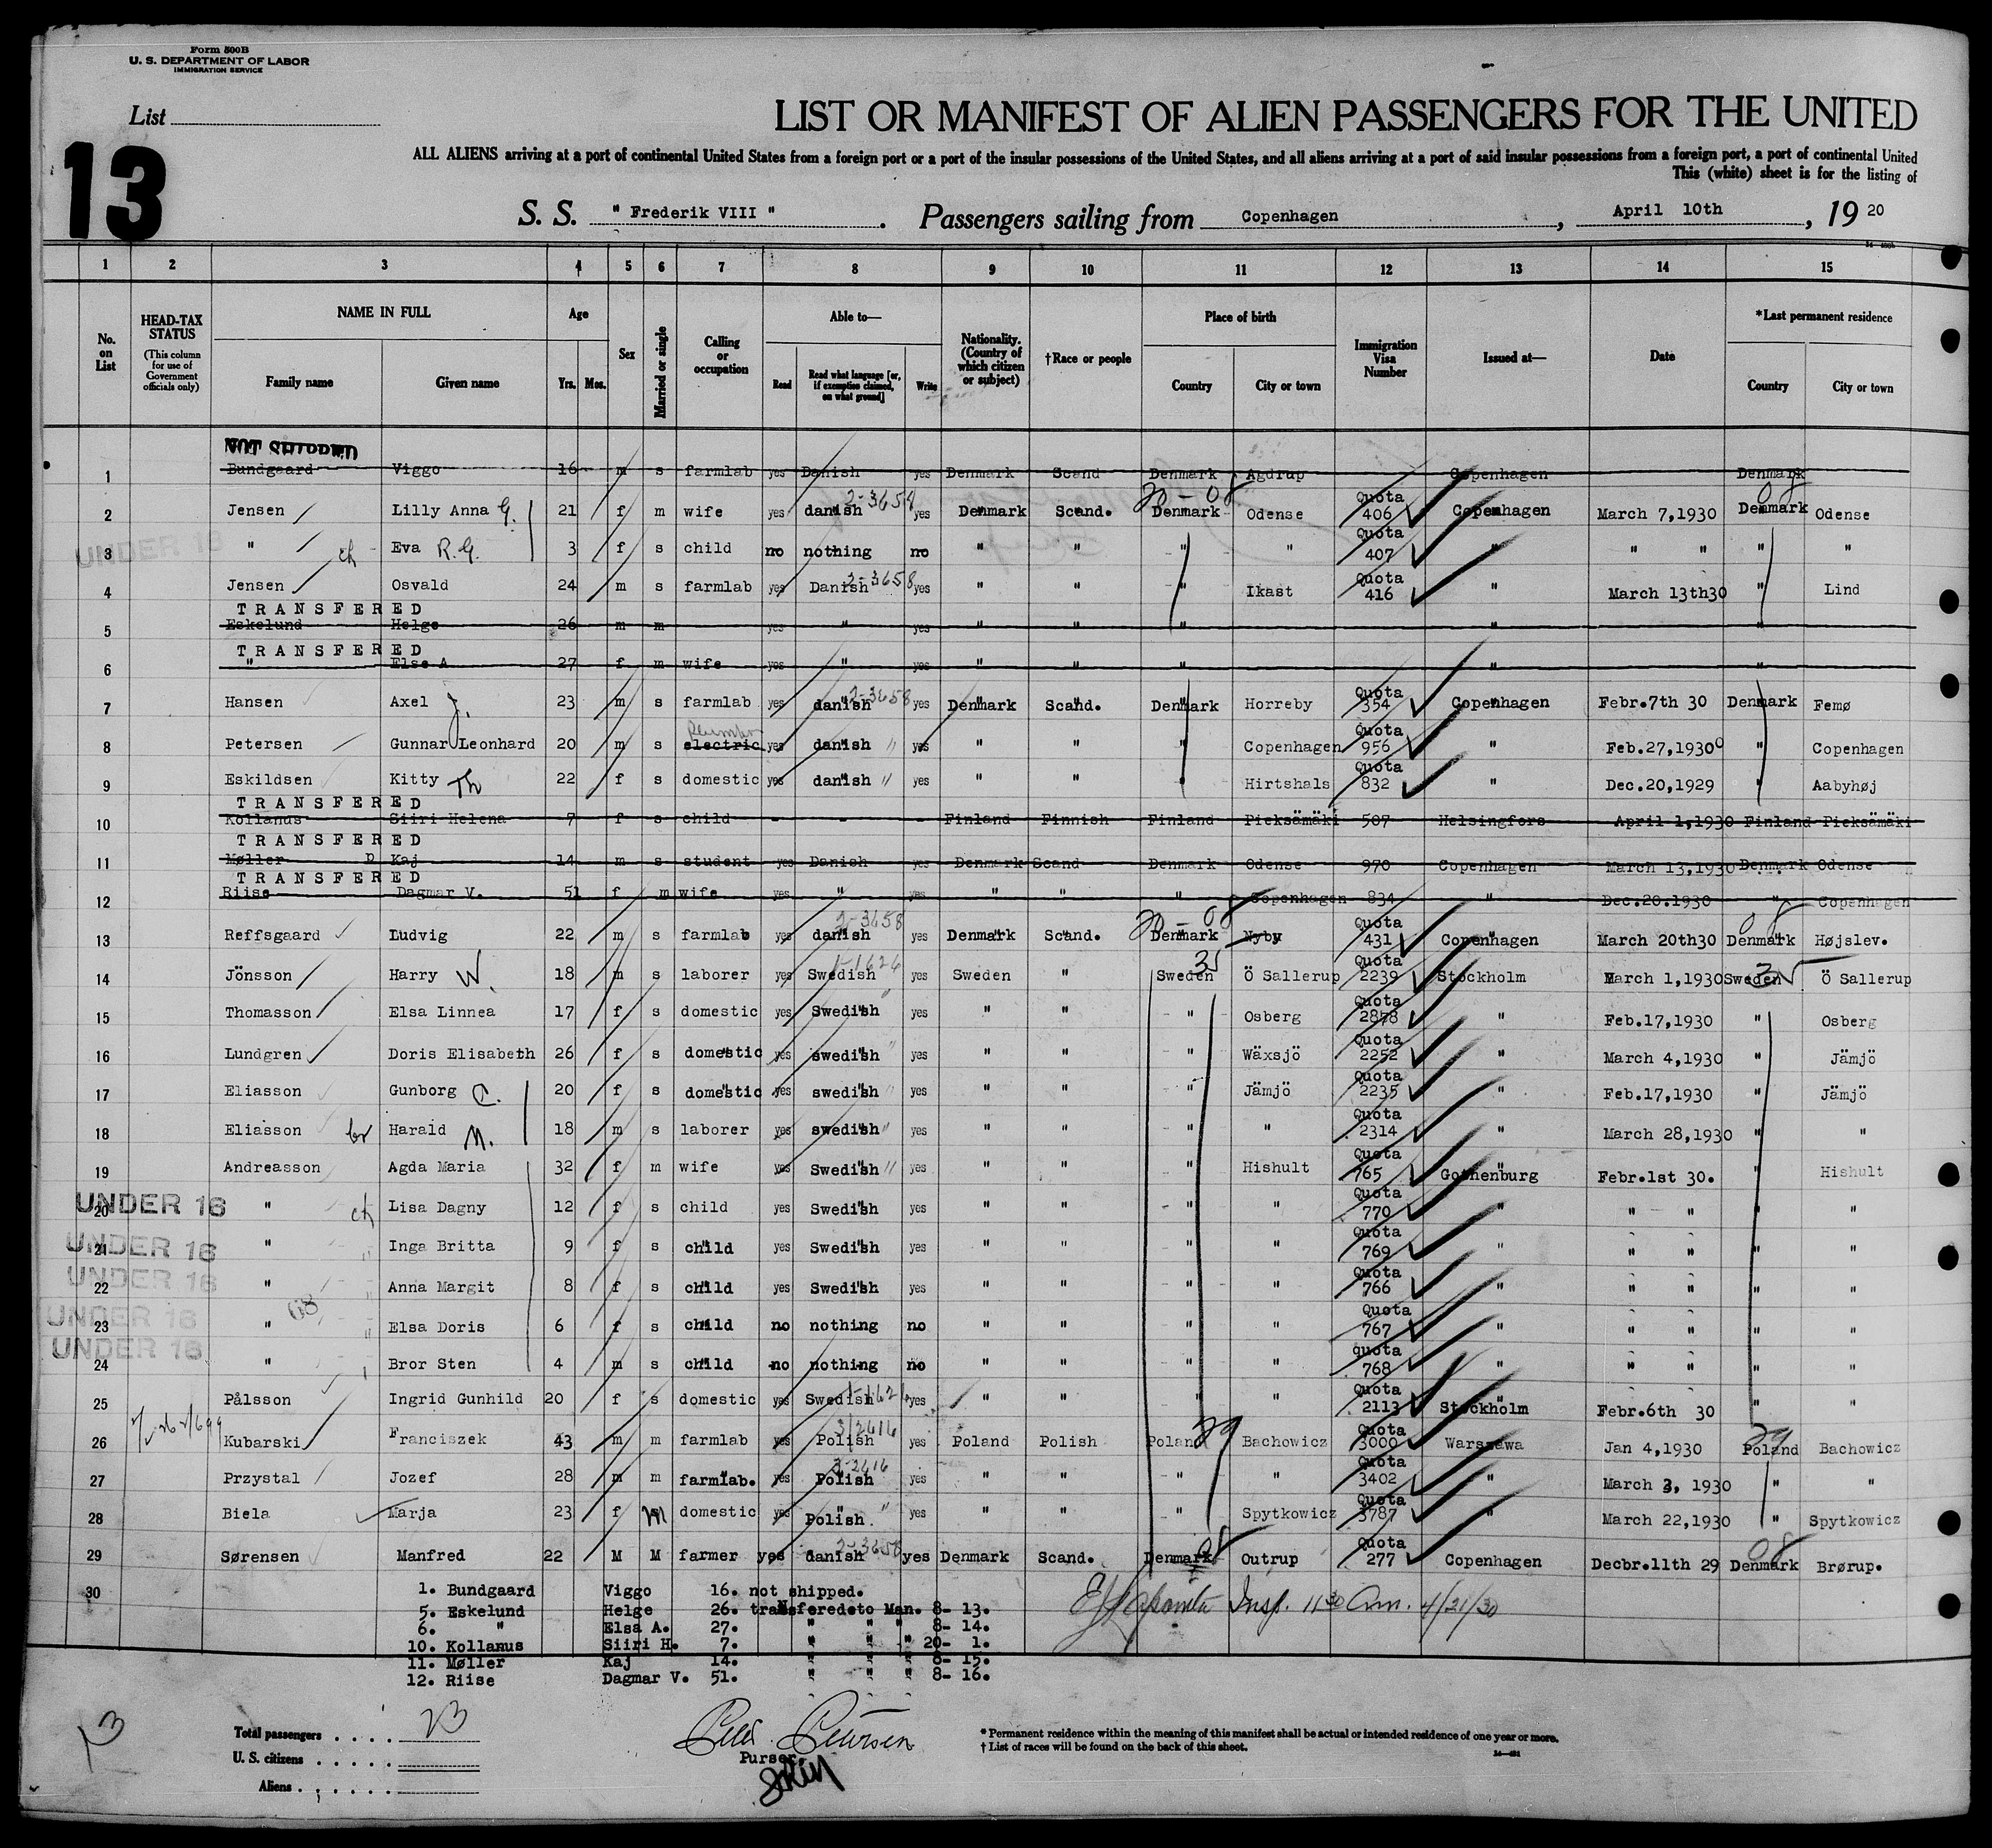 Form 500B
U. S. DEPARTMENT OF LABOR
IMMIGRATION SERVICE
List
LIST OR MANIFEST OF ALIEN PASSENGERS FOR THE UNITED
13
ALL ALIENS arriving at a port of continental United States from a foreign port or a port of the insular possessions of the United States, and all aliens arriving at a port of said insular possessions from a foreign port, a port of continental United
This (white) sheet is for the listing of
S. S. " Frederik VIII " . Passengers sailing from Copenhagen , April 10th , 19 20
1 2 3 4 5 6 7 8 9 10 11 12 13 14 15
No. on List HEAD-TAX STATUS (This column for use of Government officials only) NAME IN FULL Family name Given name Age Yrs. Mos. Sex Married or single Calling or occupation Able to— Read Read what language [or, if exemption claimed, on what ground] Write Nationality. (Country of which citizen or subject) †Race or people Place of birth Country City or town Immigration Visa Number Issued at— Date *Last permanent residence Country City or town
NOT SHIPPED
1 Bundgaard Viggo 16 m s farmlab yes Danish yes Denmark Scand Denmark Agdrup Copenhagen Denmark
2 Jensen Lilly Anna G. 21 f m wife yes danish 2-3658 yes Denmark Scand. Denmark 20-08 Odense Quota 406 Copenhagen March 7,1930 Denmark 08 Odense
UNDER 16
3 " ch Eva R.G. 3 f s child no nothing no " " " " Quota 407 " " " " "
4 Jensen Osvald 24 m s farmlab yes Danish 2-3658 yes " " " Ikast Quota 416 " March 13th30 " Lind
TRANSFERED
5 Eskelund Helge 26 m m yes " yes " " " " "
TRANSFERED
6 " Else A 27 f m wife yes " yes " " " " "
7 Hansen Axel J. 23 m s farmlab yes danish 2-3658 yes Denmark Scand. Denmark Horreby Quota 354 Copenhagen Febr.7th 30 Denmark Femø
8 Petersen Gunnar Leonhard 20 m s electric plumber yes danish " yes " " " Copenhagen Quota 956 " Feb.27,1930 " Copenhagen
9 Eskildsen Kitty Th 22 f s domestic yes danish " yes " " " Hirtshals Quota 832 " Dec.20,1929 " Aabyhøj
TRANSFERED
10 Kollanus Siiri Helena 7 f s child - - - Finland Finnish Finland Pieksämäki 507 Helsingfors April 1,1930 Finland Pieksämäki
TRANSFERED
11 Møller P Kaj 14 m s student yes Danish yes Denmark Scand Denmark Odense 970 Copenhagen March 13,1930 Denmark Odense
TRANSFERED
12 Riise Dagmar V. 51 f m wife yes " yes " " " Copenhagen 834 " Dec.20.1930 " Copenhagen
13 Reffsgaard Ludvig 22 m s farmlab yes danish 2-3658 yes Denmark Scand. Denmark 20-08 Nyby Quota 431 Copenhagen March 20th30 Denmark 08 Højslev.
14 Jönsson Harry W. 18 m s laborer yes Swedish 1-1626 yes Sweden " Sweden 35 Ö Sallerup Quota 2239 Stockholm March 1,1930 Sweden 35 Ö Sallerup
15 Thomasson Elsa Linnea 17 f s domestic yes Swedish " yes " " " Osberg Quota 2878 " Feb.17,1930 " Osberg
16 Lundgren Doris Elisabeth 26 f s domestic yes swedish " yes " " " Wäxsjö Quota 2252 " March 4,1930 " Jämjö
17 Eliasson Gunborg C. 20 f s domestic yes swedish " yes " " " Jämjö Quota 2235 " Feb.17,1930 " Jämjö
18 Eliasson br Harald N. 18 m s laborer yes swedish " yes " " " " Quota 2314 " March 28,1930 " "
19 Andreasson Agda Maria 32 f m wife yes Swedish " yes " " " Hishult Quota 765 Gothenburg Febr.1st 30. Hishult
UNDER 16
20 " ch Lisa Dagny 12 f s child yes Swedish yes " " " " Quota 770 " " " " "
UNDER 16
21 " " Inga Britta 9 f s child yes Swedish yes " " " " Quota 769 " " " " "
UNDER 16
22 " " Anna Margit 8 f s child yes Swedish yes " " " " Quota 766 " " " " "
UNDER 16
23 " " Elsa Doris 6 f s child no nothing no " " " " Quota 767 " " " " "
UNDER 16
24 " Bror Sten 4 m s child no nothing no " " " " quota 768 " " " " "
25 Pålsson Ingrid Gunhild 20 f s domestic yes Swedish yes " " " " Quota 2113 Stockholm Febr.6th 30 " "
26 Kubarski Franciszek 43 m m farmlab yes Polish 3/2616 yes Poland Polish Poland 29 Bachowicz Quota 3000 Warszawa Jan 4,1930 Poland 29 Bachowicz
27 Przystal Jozef 28 m m farmlab. yes Polish 3-2616 yes " " " " Quota 3402 " March 3, 1930 " "
28 Biela Marja 23 f m domestic yes Polish " yes " " " Spytkowicz Quota 3787 " March 22,1930 " Spytkowicz
29 Sørensen Manfred 22 M M farmer yes danish 2-3658 yes Denmark Scand. Denmark 08 Outrup Quota 277 Copenhagen Decbr.11th 29 Denmark 08 Brørup.
30 1. Bundgaard Viggo 16. not shipped.
5. Eskelund Helge 26. transferedto Man. 8- 13.
6. " Elsa A. 27. " " " 8- 14.
10. Kollanus Siiri H. 7. " " " 20- 1.
11. Møller Kaj 14. " " " 8- 15.
12. Riise Dagmar V. 51. " " " 8- 16.
Insp. 11 30 am. 4/21/30
13
Total passengers . . . . 23
U. S. citizens . . . . .
Aliens . . . . .
Peter Petersen
Purser.
* Permanent residence within the meaning of this manifest shall be actual or intended residence of one year or more.
† List of races will be found on the back of this sheet.